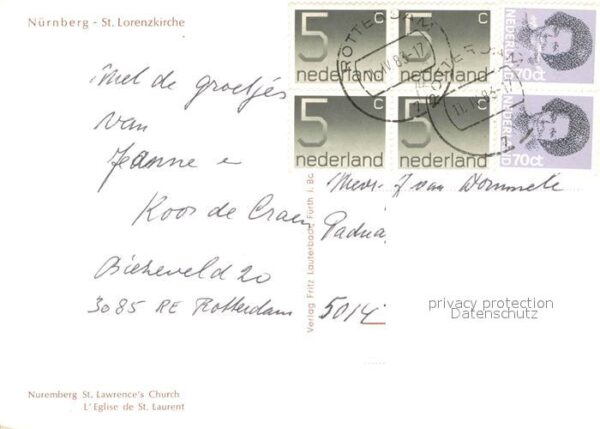 Nürnberg - St. Lorenzkirche
5 c nederland
5 c nederland
NEDERLAND 70ct
5 c nederland
5 c nederland
NEDERLAND 70ct
ROTTERDAM
11.IV.83.-17
Met de groetjes
van
Jeanne e
Koos de Craen
Biezeveld 20
3085 RE Rotterdam
Verlag Fritz Lauterbach, Fürth i. Bc
Mevr. J van Dommele
Padua
5014
privacy protection
Datenschutz
Nuremberg St. Lawrence's Church
L'Eglise de St. Laurent